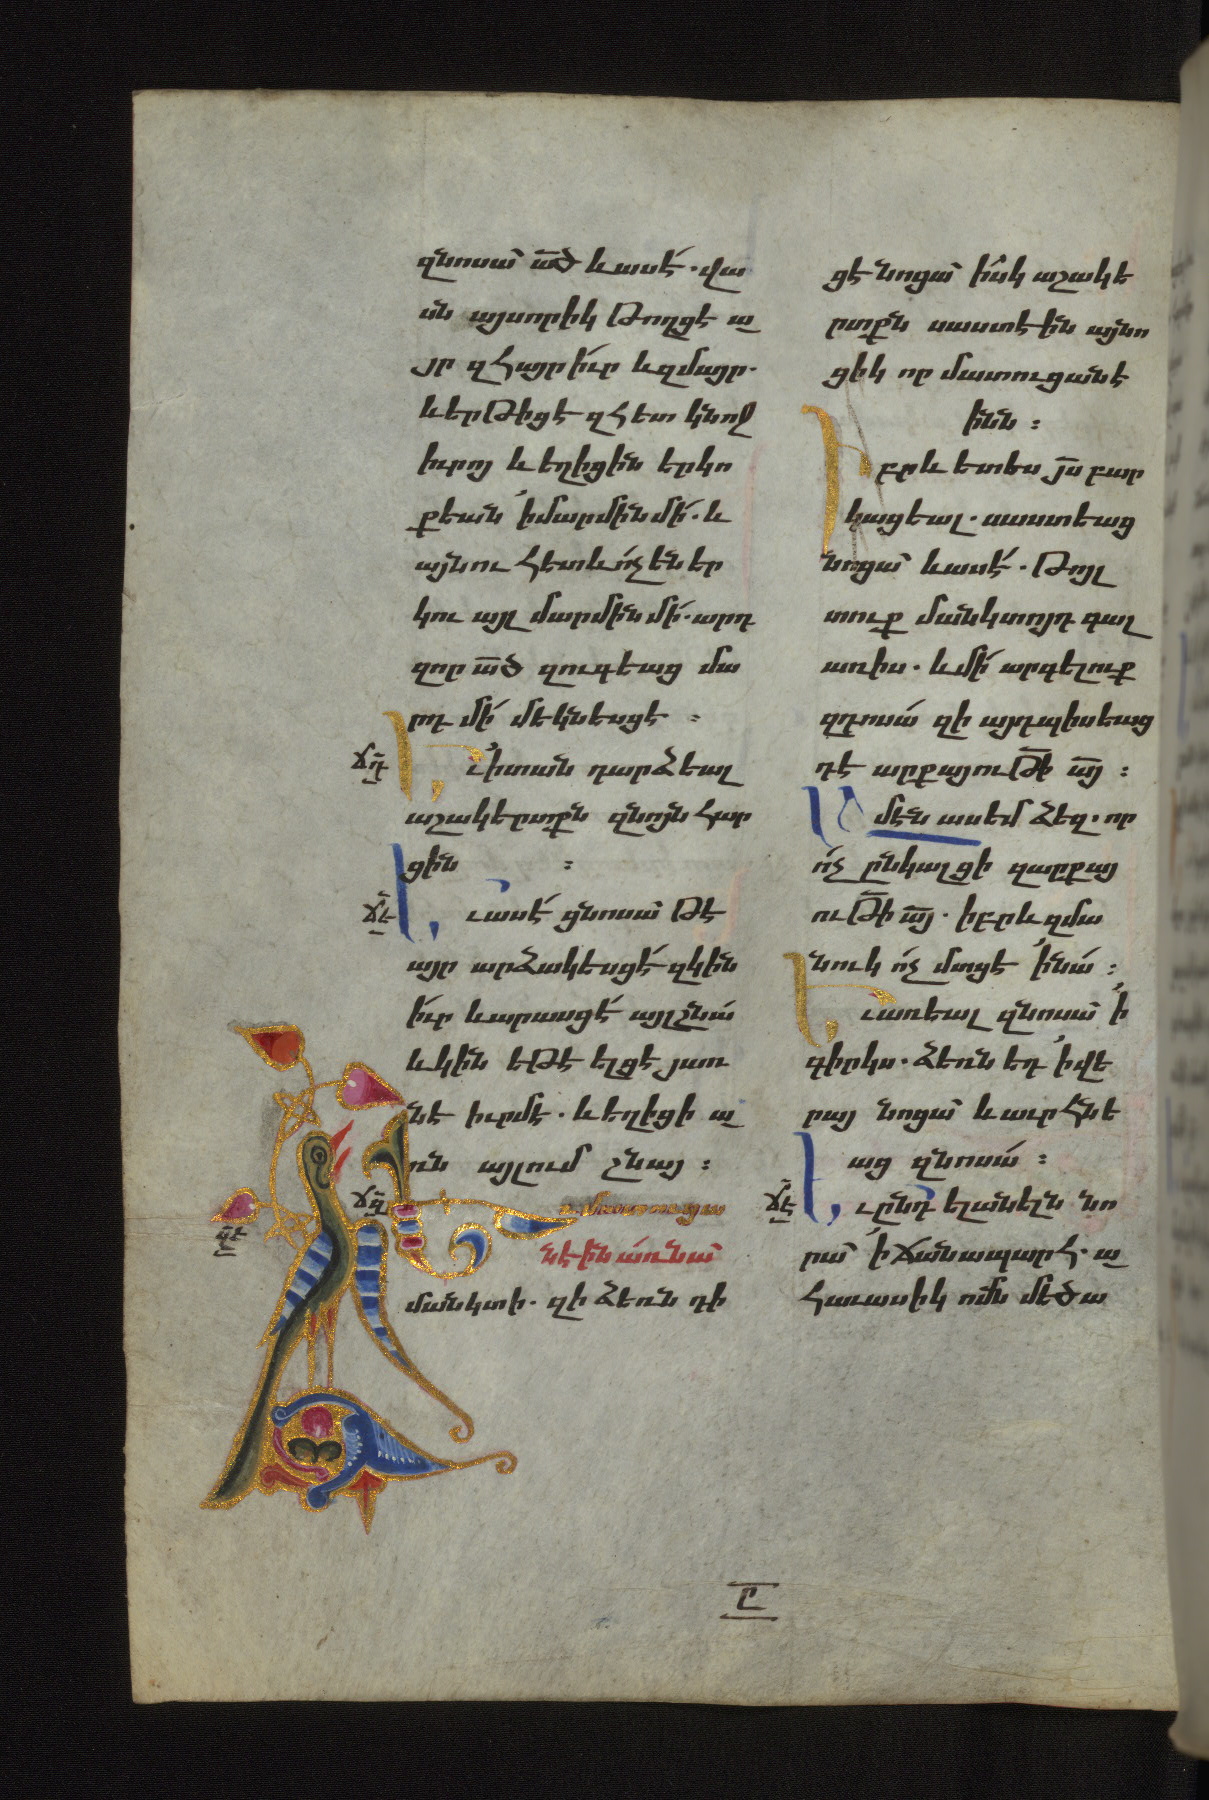 զնոսա ա՟ծ և ասէ. վա
սն այսորիկ թողցէ ա
յր զհայր իւր և զմայր.
և երթիցէ զհետ կնոջ
իւրոյ և եղիցին երկո
քեան ՚ի մարմին մի. և
այնուհետև ոչ են եր
կու այլ մարմին մի. արդ
զոր ա՟ծ զուգեաց մա
րդ մի մեկնեսցէ :
ճդ
Եւ ՚ի տան դարձեալ
աշակերտքն զնոյն հար
ցին :
ճե
Եւ ասէ ցնոսա թէ
այր արձակեսցէ զկին
իւր և արասցէ այլ շնա
և կին եթէ ելցէ յառ
նէ իւրմէ. և եղիցի ա
ռն այլում շնայ :
ճզ
Եւ մատուցա
նէին առ նա
մանկտի. զի ձեռն դի
ցէ նոցա իսկ աշակե
րտքն սաստէին այնո
ցիկ որ մատուցանէ
ին :
Իբրև ետես յ՟ս բար
կացեալ. սաստեաց
նոցա և ասէ. Թոյլ
տուք մանկտոյդ գալ
առիս. և մի արգելուք
զդոսա զի այդպիսեաց
դէ արքայու՟թի ա՟յ :
Ամէն ասեմ ձեզ. որ
ոչ ընկալցի զարքայ
ու՟թի ա՟յ. իբրև զմա
նուկ ոչ մտցէ ՚ի նա :
Եւ առեալ զնոսա ՚ի
գիրկս. ձեռն եդ ՚ի վե
րայ նոցա և աւրհնե
աց զնոսա :
ճէ
Եւ ընդ ելանելն նո
րա ՚ի ճանապարհ. ա
հաւասիկ ո՟մն մեծա
Ը